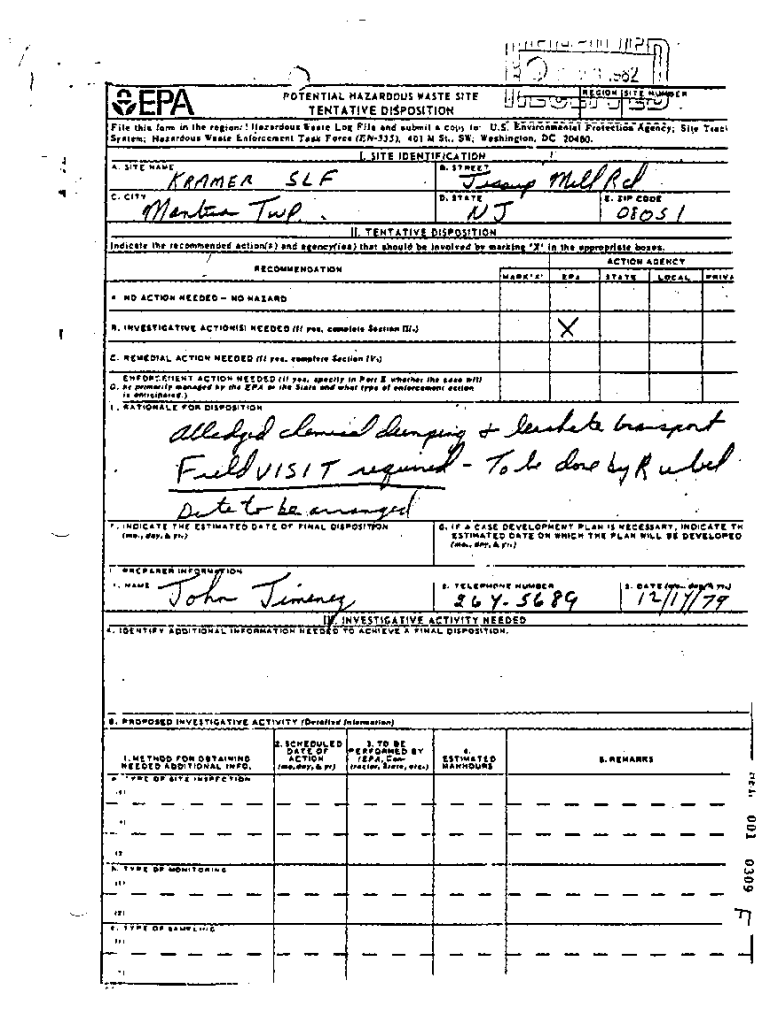 1982
EPA
POTENTIAL HAZARDOUS WASTE SITE
TENTATIVE DISPOSITION
REGION SITE NUMBER
RECEIVED
File this form in the regional Hazardous Waste Log File and submit a copy to: U.S. Environmental Protection Agency; Site
System; Hazardous Waste Enforcement Task Force (EN-335), 401 M St., SW; Washington, DC 20460.
I. SITE IDENTIFICATION
A. SITE NAME
KRAMER SLF
B. STREET
Jessup Mill Rd
C. CITY
Mantua Twp.
D. STATE
NJ
E. ZIP CODE
08051
II. TENTATIVE DISPOSITION
Indicate the recommended action(s) and agency(ies) that should be involved by marking 'X' in the appropriate boxes.
RECOMMENDATION
ACTION AGENCY
MARK 'X'
EPA
STATE
LOCAL
PRIVA
A. NO ACTION NEEDED – NO HAZARD
B. INVESTIGATIVE ACTION(S) NEEDED (If yes, complete Section III.)
X
C. REMEDIAL ACTION NEEDED (If yes, complete Section IV.)
ENFORCEMENT ACTION NEEDED (If yes, specify in Part E whether the case will
D. be primarily managed by the EPA or the State and what type of enforcement action
is anticipated.)
E. RATIONALE FOR DISPOSITION
Alledged chemical dumping + leachate transport
Field VISIT required - To be done by Rubel
Date to be arranged
F. INDICATE THE ESTIMATED DATE OF FINAL DISPOSITION
(mo., day, & yr.)
G. IF A CASE DEVELOPMENT PLAN IS NECESSARY, INDICATE TH
ESTIMATED DATE ON WHICH THE PLAN WILL BE DEVELOPED
(mo., day, & yr.)
PREPARER INFORMATION
1. NAME
John Jimenez
2. TELEPHONE NUMBER
264-5689
3. DATE (mo., day, & yr.)
12/14/79
III. INVESTIGATIVE ACTIVITY NEEDED
A. IDENTIFY ADDITIONAL INFORMATION NEEDED TO ACHIEVE A FINAL DISPOSITION.
B. PROPOSED INVESTIGATIVE ACTIVITY (Detailed Information)
1. METHOD FOR OBTAINING
NEEDED ADDITIONAL INFO.
2. SCHEDULED
DATE OF
ACTION
(mo, day, & yr)
3. TO BE
PERFORMED BY
(EPA, Con-
tractor, State, etc.)
4.
ESTIMATED
MANHOURS
5. REMARKS
a. TYPE OF SITE INSPECTION
(1)
b. TYPE OF MONITORING
(1)
(2)
c. TYPE OF SAMPLING
(1)
001 0309
F